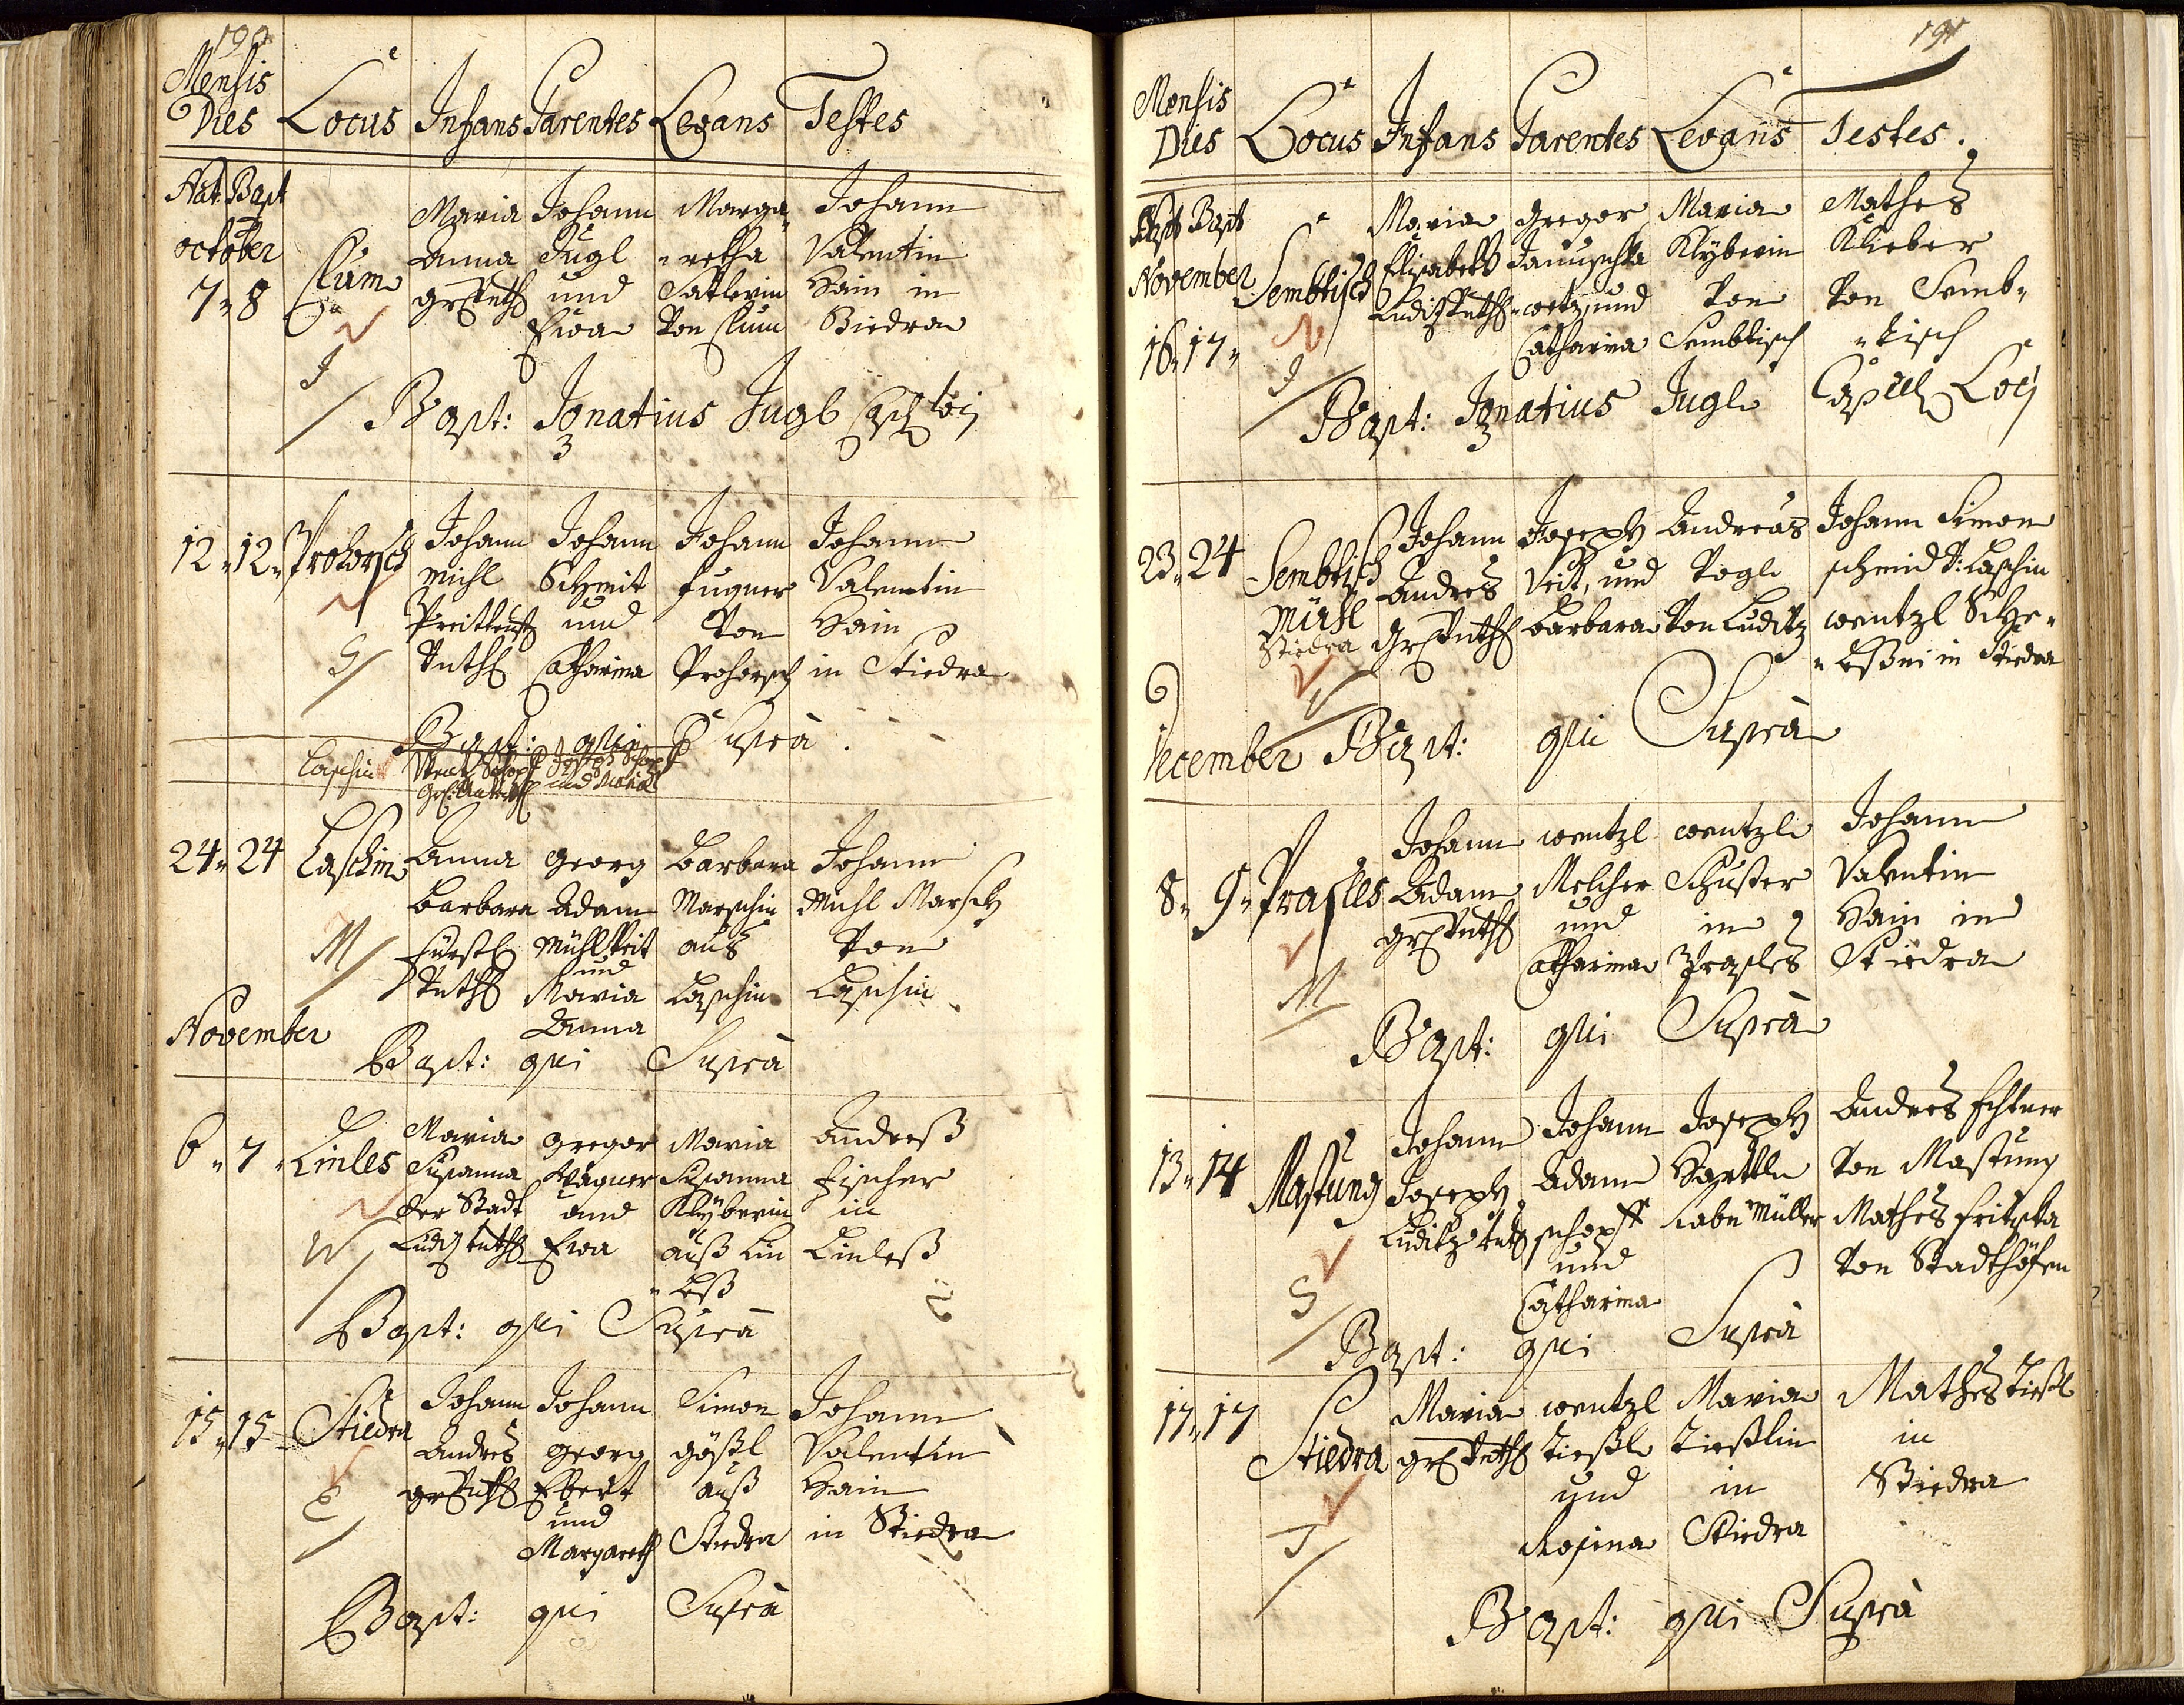 190
Mensis
Dies Locus Infans Parentes Levans Testes
Nat. Bapt
October
7 " 8 Clum
Maria Anna
Johann Jugl und Ewa
Marga "retha Sattlerin Von Clum
Johann Valentin Hain in Stiedra
J
Bapt: Ignatius Jugl Loci
12 " 12 " Prohorsch
Johann Michl
Johann Schmit und Catharina
Johann Fugner Von Prohorsch
Johann Valentin Hain in Stiedra
S
Bapt: qui Supra
Laschin
und Maria
24 " 24 Laschin
Anna Barbara
Georg Adam Mühlveit und Maria Anna
Barbara Marschin aus Laschin
Johann Michl Marsch Von Laschin
M
November
Bapt: qui Supra
6 " 7 " Linles
Maria Susanna der Stadt Luditz
Gregor Wagner und Ewa
Maria Susanna Klyberin auß Lin "leß
Andreß Fischer in Linleß
W
Bapt: qui Supra
15 " 15 Stiedra
Johann Andres
Johann Georg Ebert und Margareth
Simon Gößl auß Stiedra
Johann Valentin Hain in Stiedra
E
Bapt: qui Supra
191
Mensis
Dies Locus Infans Parentes Levans Testes.
Bapt
November
16 " 17 " Sembtisch
Maria Elisabeth
Gregor und Catharina
Maria Klyberin Von Sembtisch
Mathes Klieber Von Semb" "tisch
J
Bapt: Ignatius Jugl Loci
23 " 24 Sembtisch Mühl Stiedra
Johann Andres
Joseph Veit, und Barbara
Andreas Vogl Von Luditz
Johann Simon Schmid V: Laschin
Wentzl in Stiedra
V
December Bapt: qui Supra
8 " 9 " Prasles
Johann Adam
Wentzl Melcher und Catharina
Wentzl Schuster in Prasles
Johann Valentin Hain in Stiedra
M
Bapt: qui Supra
13 " 14 Mastung
Johann Joseph Luditz
Johann Adam Schopff und Catharina
Joseph Müller
Andres Von Mastung
Mathes Von Stadthöfen
S
Bapt: qui Supra
17 " 17 Stiedra
Maria
Wentzl Tießl und Rosina
Maria Tießlin in Stiedra
Mathes Tießl in Stiedra
T
Bapt: qui Supra